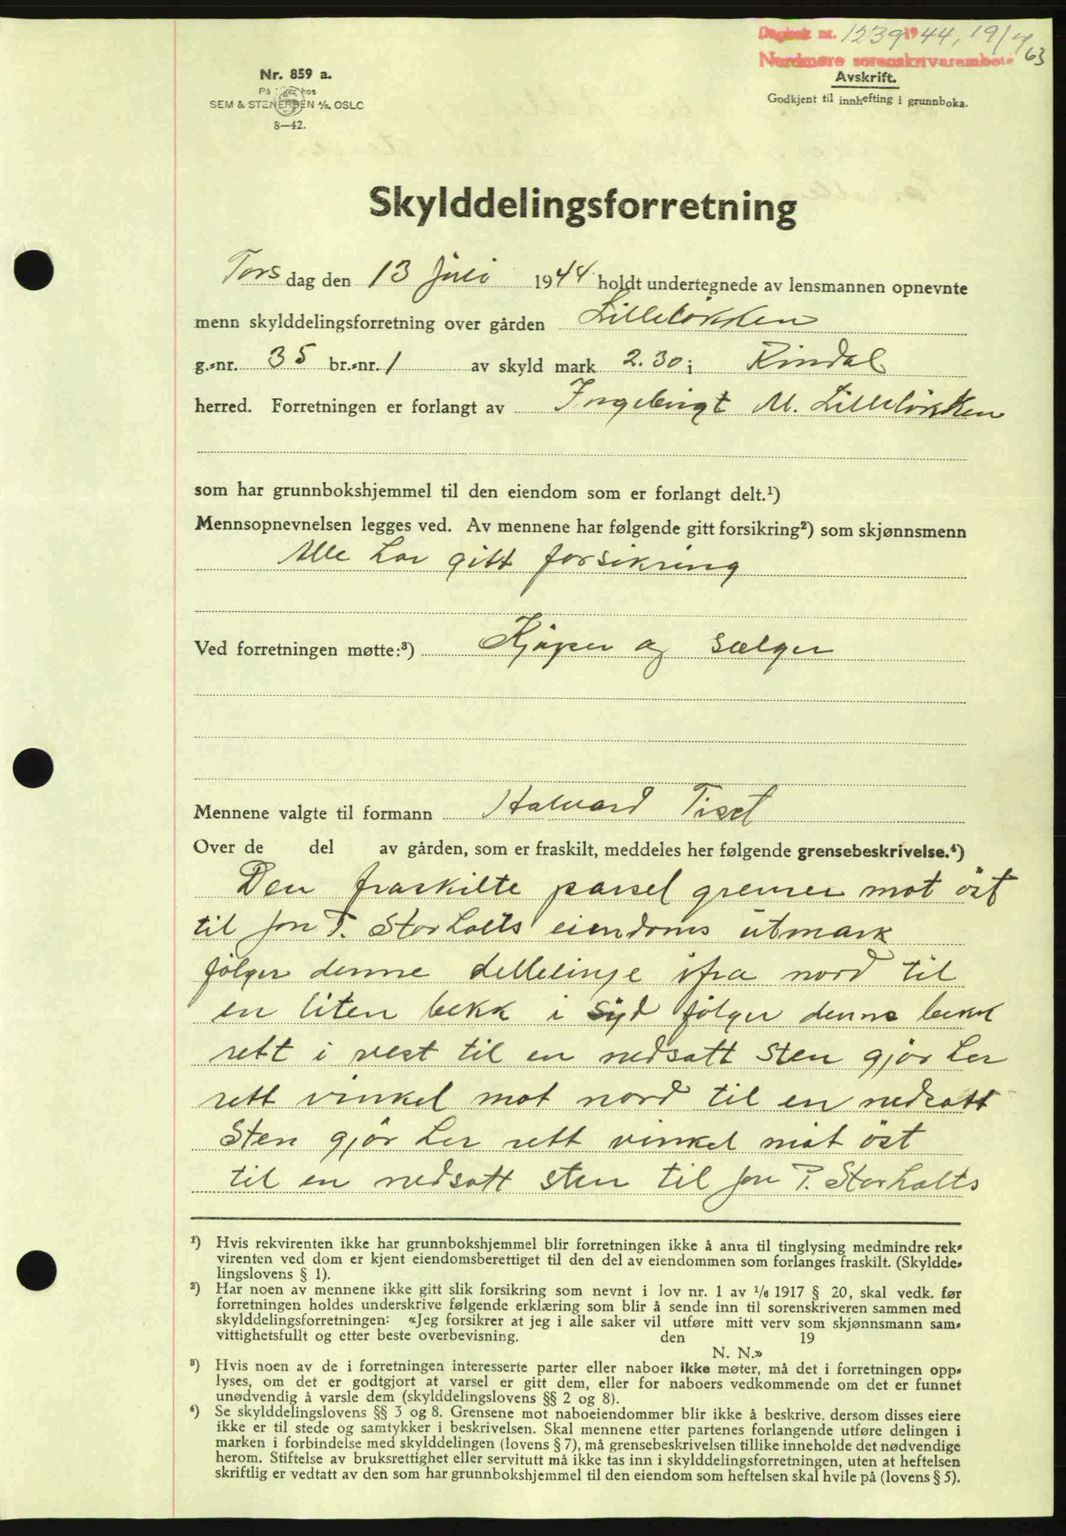 Dagbok nr. 1239 1944, 19/7
Nordmøre sorenskrivarembete 63
Nr. 859 a.
SEM & STENERSEN A/S, OSLO
8—42.
Avskrift.
Godkjent til innhefting i grunnboka.
Skylddelingsforretning
Torsdag den 13 juli 1944 holdt undertegnede av lensmannen opnevnte
menn skylddelingsforretning over gården Lilleløkken
g.-nr. 35 br.-nr. 1 av skyld mark 2.30 i Rindal
herred. Forretningen er forlangt av Ingebrigt M. Lilleløkken
som har grunnbokshjemmel til den eiendom som er forlangt delt.¹)
Mennsopnevnelsen legges ved. Av mennene har følgende gitt forsikring²) som skjønnsmenn
Alle har gitt forsikring
Ved forretningen møtte:³) Kjøper og sælger
Mennene valgte til formann Halvard Tiset
Over de del av gården, som er fraskilt, meddeles her følgende grensebeskrivelse.⁴)
Den fraskilte parsel grenser mot öst
til Jon P. Storholts eiendoms utmark
følger denne dellelinje ifra nord til
en liten bekk i syd følger denne bekk
rett i vest til en nedsatt sten gjör her
rett vinkel mot nord til en nedsatt
sten gjör her rett vinkel mot öst
til en nedsatt sten til Jon P. Storholts
¹) Hvis rekvirenten ikke har grunnbokshjemmel blir forretningen ikke å anta til tinglysing medmindre rek-
virenten ved dom er kjent eiendomsberettiget til den del av eiendommen som forlanges fraskilt. (Skyldde-
lingslovens § 1).
²) Har noen av mennene ikke gitt slik forsikring som nevnt i lov nr. 1 av 1/6 1917 § 20, skal vedk. før
forretningen holdes underskrive følgende erklæring som blir å sende inn til sorenskriveren sammen med
skylddelingsforretningen: «Jeg forsikrer at jeg i alle saker vil utføre mitt verv som skjønnsmann sam-
vittighetsfullt og etter beste overbevisning. den 19
N. N.»
³) Hvis noen av de i forretningen interesserte parter eller naboer ikke møter, må det i forretningen opp-
lyses, om det er godtgjort at varsel er gitt dem, eller for naboers vedkommende om det er funnet
unødvendig å varsle dem (skylddelingslovens §§ 2 og 8).
⁴) Se skylddelingslovens §§ 3 og 8. Grensene mot naboeiendommer blir ikke å beskrive, dersom disses eiere
ikke er til stede og samtykker i beskrivelsen. Skal mennene etter partenes forlangende utføre delingen i
marken i forbindelse med skylddelingen (lovens § 7), må grensebeskrivelsen tillike inneholde det nødvendige
herom. Stiftelse av bruksrettighet eller servitutt må ikke tas inn i skylddelingsforretningen, uten at heftelsen
skriftlig er vedtatt av den som har grunnbokshjemmel til den eiendom som heftelsen skal hvile på (lovens § 5).